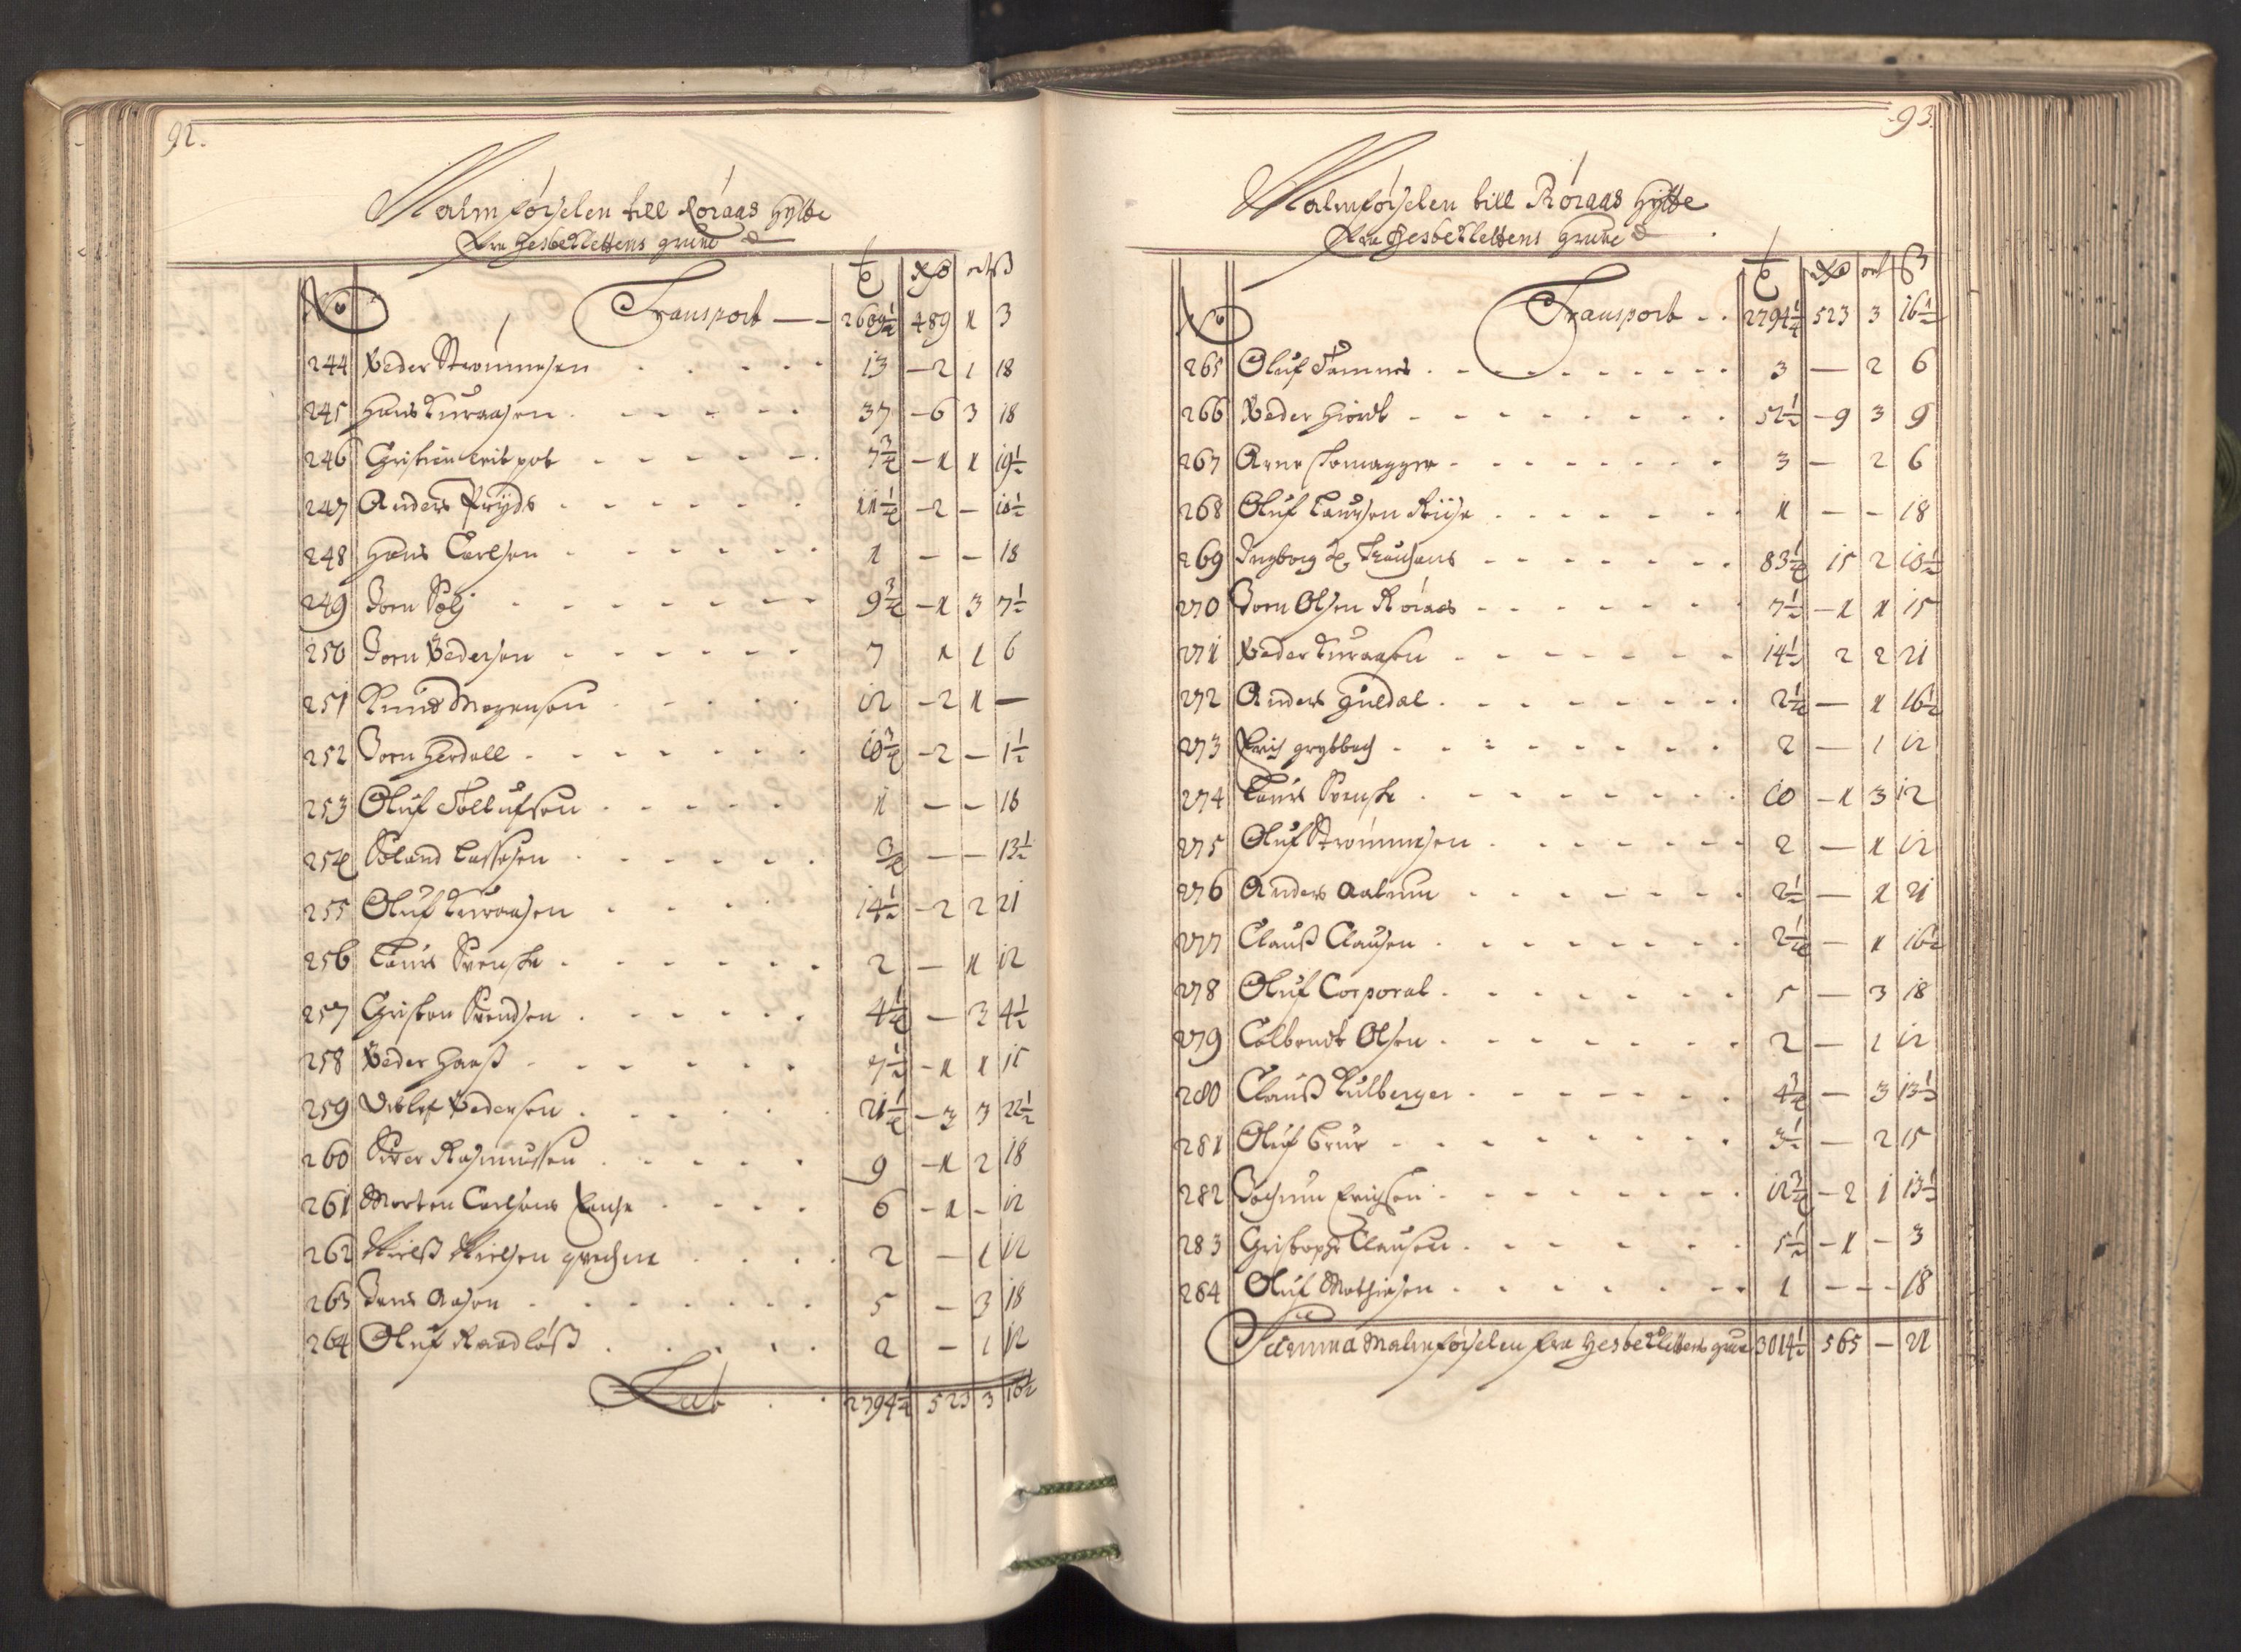 92.
Malmførselen till Røraas Hytte
fra Hesteklettens grube
No Transport — 2609½ 489 1 3
244 Peder Strømmesen 13 – 2 1 18
245 Hans Kuraasen 37 – 6 3 18
246 Cristen 7¾ – 1 1 19½
247 Anders Fryds 11¼ – 2 – 10½
248 Hans Carlsen 1 – – 18
249 Joen Sølj 9¾ – 1 3 7½
250 Joen Pedersen 7 1 1 6
251 Knud Mogensen 12 – 2 1 –
252 Joen Herdall 10¾ – 2 – 1½
253 Oluf Tollufsen 1 – – 18
254 Roland Lassesen ¾ – – 13½
255 Oluf Kuraasen 14½ – 2 2 21
256 Laurs Svenske 2 – 1 12
257 Cristen Svendsen 4¼ – 3 4½
258 Peder Haass 7½ – 1 1 15
259 Detlef Pedersen 21¼ – 3 3 22½
260 Siver Rasmussen 9 – 1 2 18
261 Morten Carlsens Encke 6 – 1 – 12
262 Nielß Nielsen 2 – 1 12
263 Jens Aasen 5 – 3 18
264 Oluf Raadløß 2 – 1 12
Lat. 2794¼ 523 3 16½
93.
Malmførselen till Røraas Hytte
fra Hesteklettens Grube
No Transport 2794¼ 523 3 16½
265 Oluf Tamnes 3 — 2 6
266 Peder Hiort 52½ – 9 3 9
267 Arne Skomagger 3 – 2 6
268 Oluf Laursen Riise 1 – – 18
269 Ingborg Sl. Knudsens 83¼ 15 2 10½
270 Joen Olsen Røraas 7½ – 1 1 15
271 Peder Kuraasen 14½ 2 2 21
272 Anders Guldal 2¼ — 1 16½
273 Erich grytbach 2 — 1 12
274 Laurs Svenske 10 – 1 3 12
275 Oluf Strømmesen 2 — 1 12
276 Anders Aalmu 2½ — 1 21
277 Clauß Clausen 2¼ – 1 16½
278 Oluf Corporal 5 — 3 18
279 Colbendt Olsen 2 – 1 12
280 Clauß Kulberger 4¾ — 3 13½
281 Oluf Brun 3½ — 2 15
282 Jochum Erichsen 12¾ – 2 1 13½
283 Cristopher Clausen 5½ – 1 – 3
284 Oluf Mathiesen 1 – – – 18
Summa Malmførselen fra Hesteklettens grube 3014½ 565 – 21